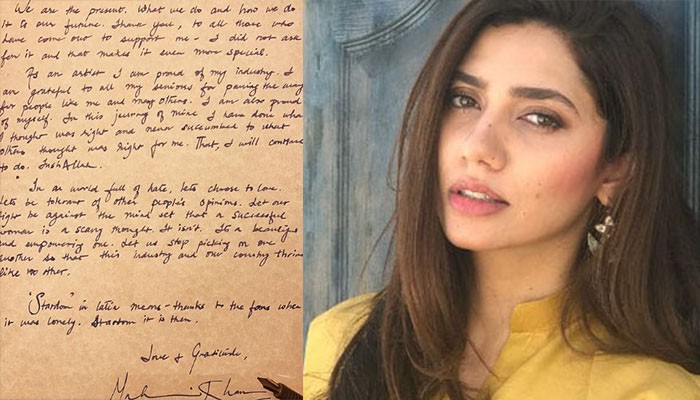 We are the present. What we do and how we do
it is our future. Thank you, to all those who
have come out to support me - I did not ask
for it and that makes it even more special.
As an artist I am proud of my industry. I
am grateful to all my seniors for paving the way
for people like me and many others. I am also proud
of myself. In this journey of mine I have done what
I thought was right and never succumbed to what
others thought was right for me. That, I will continue
to do. InshAllah.
In a world full of hate, lets choose to love.
Lets be tolerant of other people's opinions. Let our
fight be against the mind set that a successful
woman is a scary thought. It isn't. Its a beautiful
and empowering one. Let us stop picking on one
another so that this industry and our country thrive
like no other.
"Stardom" in latin means - thanks to the fans when
it was lonely. Stardom it is then.
Love & Gratitude,
Khan